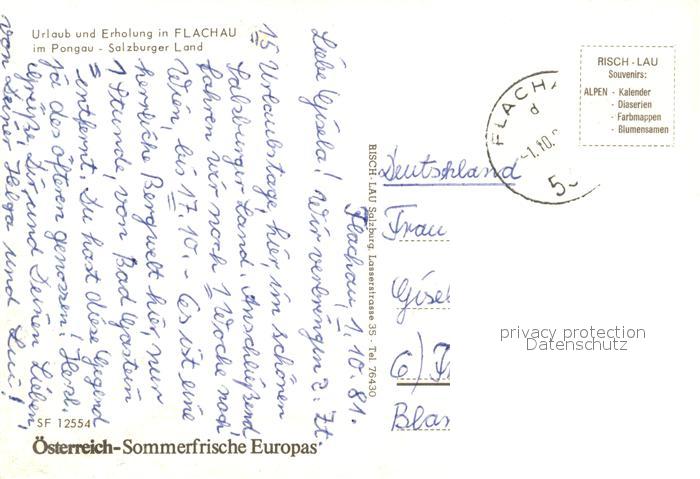 Urlaub und Erholung in FLACHAU
im Pongau - Salzburger Land
Flachau, 1.10.81.
Liebe Gisela! Wir verbringen z. Zt.
15 Urlaubstage, hier, im schönen
Salzburger Land. Anschließend
fahren wir noch 1 Woche nach
Wien, bis 17.10. - Es ist eine
herrliche Bergwelt hier, nur
1 Stunde, von Bad Gastein
entfernt. Du hast diese Gegend
ja des öfteren genossen! Herzl.
Grüße, Dir und Deinen Lieben,
von Deiner Helga und Lui!
SF 12554
Österreich-Sommerfrische Europas
RISCH-LAU Salzburg, Lasserstrasse 35 · Tel. 76430
FLACHA
d
-1.10.
5
RISCH-LAU
Souvenirs:
ALPEN - Kalender
- Diaserien
- Farbmappen
- Blumensamen
Deutschland
Frau
Gisel
6) F
Blan
privacy protection
Datenschutz